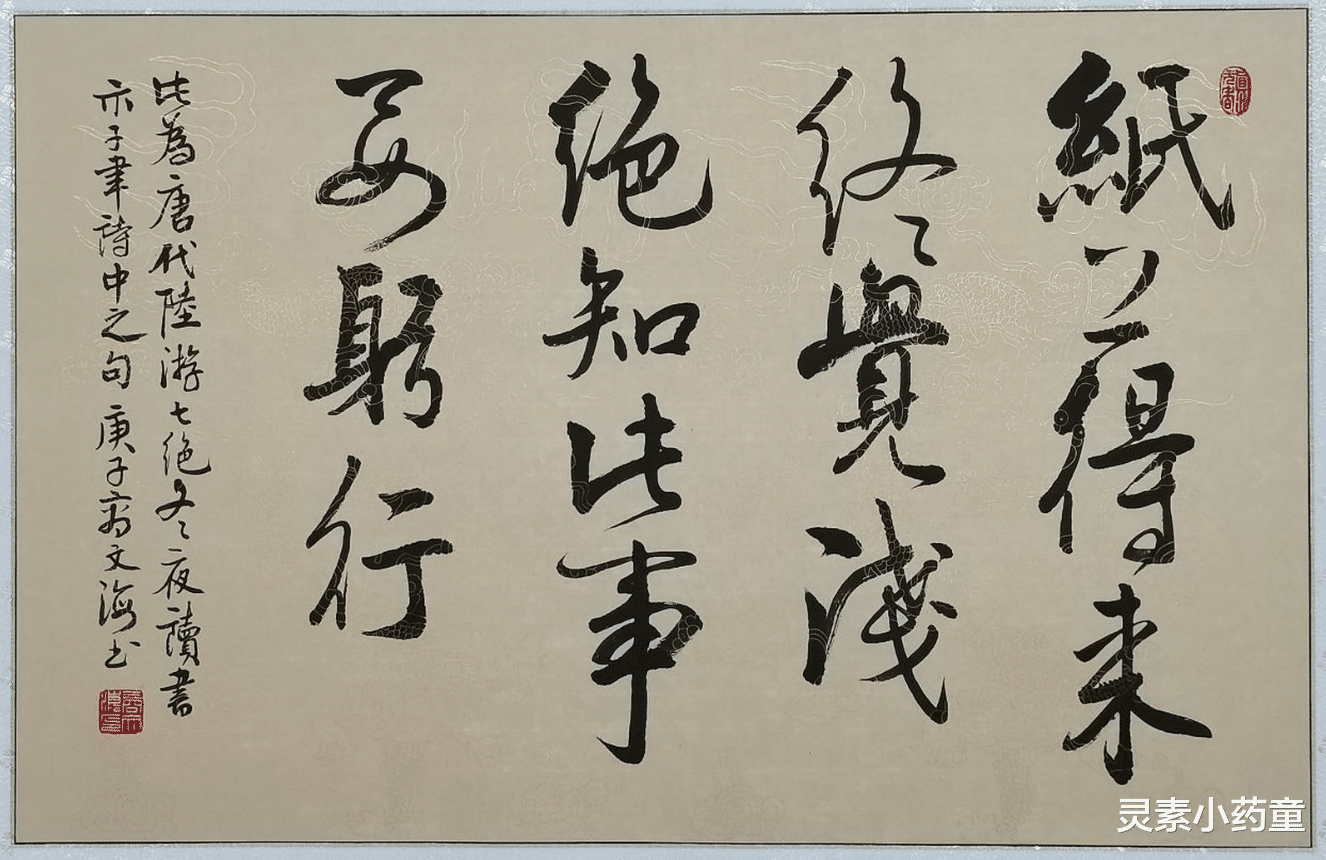 紙上得来
終覺淺
絶知此事
要躬行
此為唐代陸游七绝冬夜讀書
示子聿詩中之句庚子齐文海书
灵素小药童